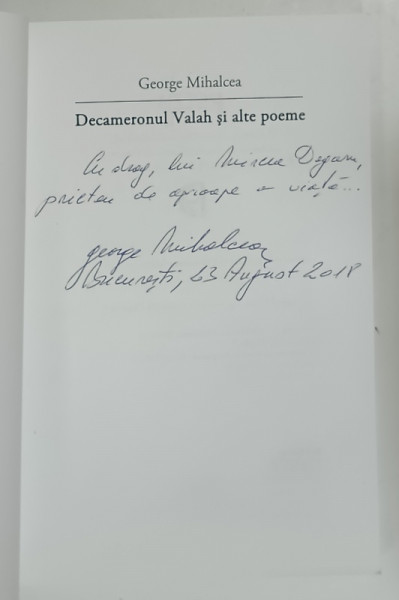 George Mihalcea
Decameronul Valah și alte poeme
Cu drag, lui Mircea
prieten de aproape o viață...
george Mihalcea
București, 23 August 2018